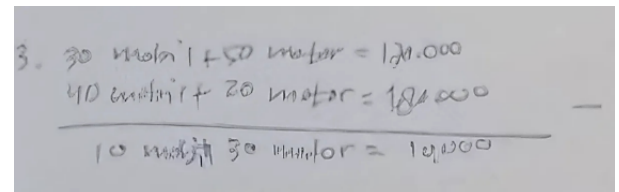 3. 30 mobil + 50 motor = 120.000
40 mobil + 20 motor = 180.000 -
10 30 motor =